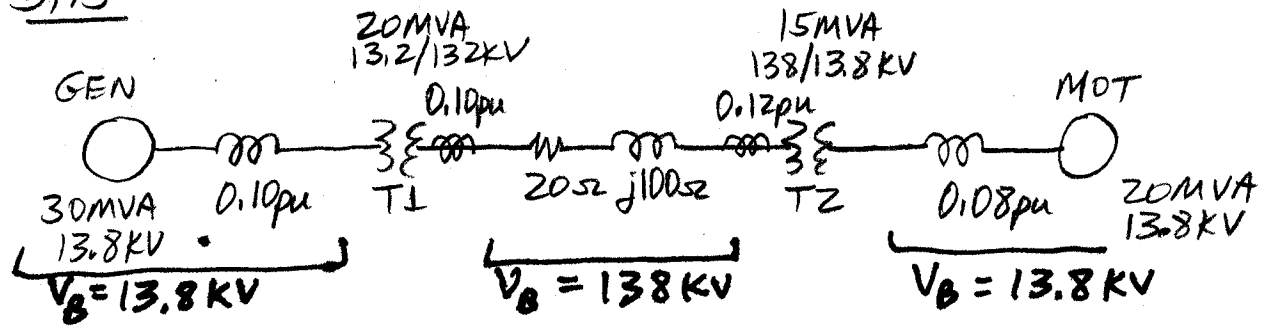 20MVA
13.2/132KV
15MVA
138/13.8KV
GEN
0.10pu
0.12pu
MOT
0.10pu
T1
20Ω j100Ω
T2
0.08pu
30MVA
13.8KV
20MVA
13.8KV
VB = 13.8KV
VB = 138KV
VB = 13.8KV